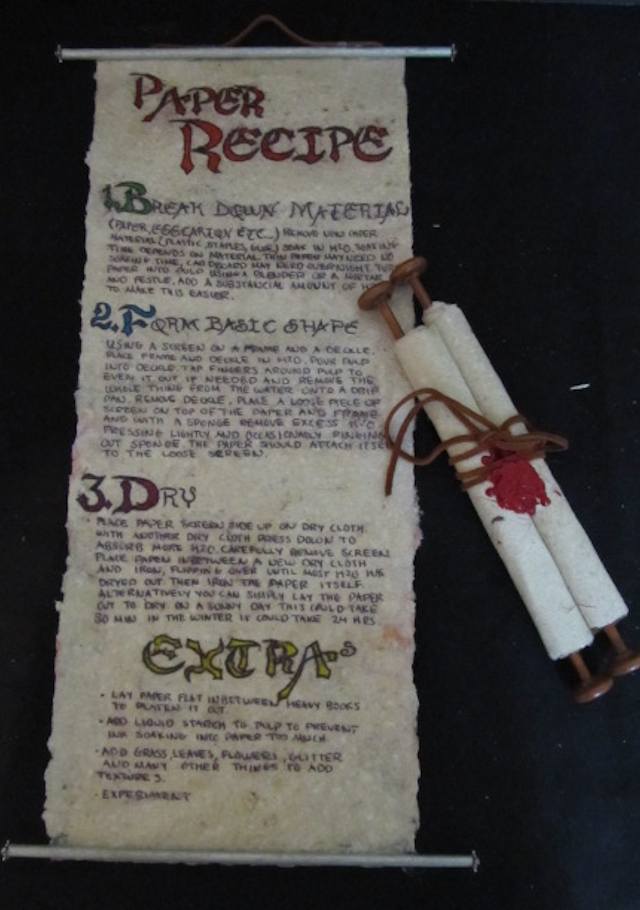 PAPER
RECIPE
1. BREAK DOWN MATERIAL
(PAPER, EGG CARTON ETC...) REMOVE NON PAPER
MATERIAL (PLASTIC, STAPLES, GLUE) SOAK IN H2O. SOAKING
TIME DEPENDS ON MATERIAL. THIN PAPER MAY NEED NO
SOAKING TIME, CARDBOARD MAY NEED OVERNIGHT. TURN
PAPER INTO PULP USING A BLENDER OR A MORTAR
AND PESTLE, ADD A SUBSTANCIAL AMOUNT OF H2O
TO MAKE THIS EASIER.
2. FORM BASIC SHAPE
USING A SCREEN ON A FRAME AND A DECKLE,
PLACE FRAME AND DECKLE IN H2O. POUR PULP
INTO DECKLE. TAP FINGERS AROUND PULP TO
EVEN IT OUT IF NEEDED AND REMOVE THE
WHOLE THING FROM THE WATER ONTO A DRIP
PAN. REMOVE DECKLE. PLACE A LOOSE PIECE OF
SCREEN ON TOP OF THE PAPER AND FRAME
AND WITH A SPONGE REMOVE EXCESS H2O
PRESSING LIGHTLY AND OCCASIONALLY RINGING
OUT SPONGE. THE PAPER SHOULD ATTACH ITSELF
TO THE LOOSE SCREEN.
3. DRY
PLACE PAPER SCREEN SIDE UP ON DRY CLOTH.
WITH ANOTHER DRY CLOTH PRESS DOWN TO
ABSORB MORE H2O. CAREFULLY REMOVE SCREEN
PLACE PAPER INBETWEEN A NEW DRY CLOTH
AND IRON, FLIPPING OVER UNTIL MOST H2O HAS
DRYED OUT THEN IRON THE PAPER ITSELF.
ALTERNATIVELY YOU CAN SIMPLY LAY THE PAPER
OUT TO DRY ON A SUNNY DAY THIS COULD TAKE
30 MIN IN THE WINTER IT COULD TAKE 24 HRS.
EXTRAS
• LAY PAPER FLAT INBETWEEN HEAVY BOOKS
TO FLATEN IT OUT.
• ADD LIQUID STARCH TO PULP TO PREVENT
INK SOAKING INTO PAPER TOO MUCH.
• ADD GRASS, LEAVES, FLOWERS, GLITTER
AND MANY OTHER THINGS TO ADD
TEXTURES.
• EXPERIMENT